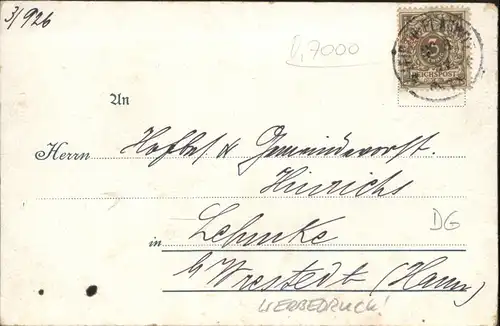 3/926
V,7000
3
REICHSPOST
An
Herrn Hofbes. & Gemeindevorst.
Hinrichs
in Lehmke
b/ Wrestedt (Hann)
DG
WERBEDRUCK!